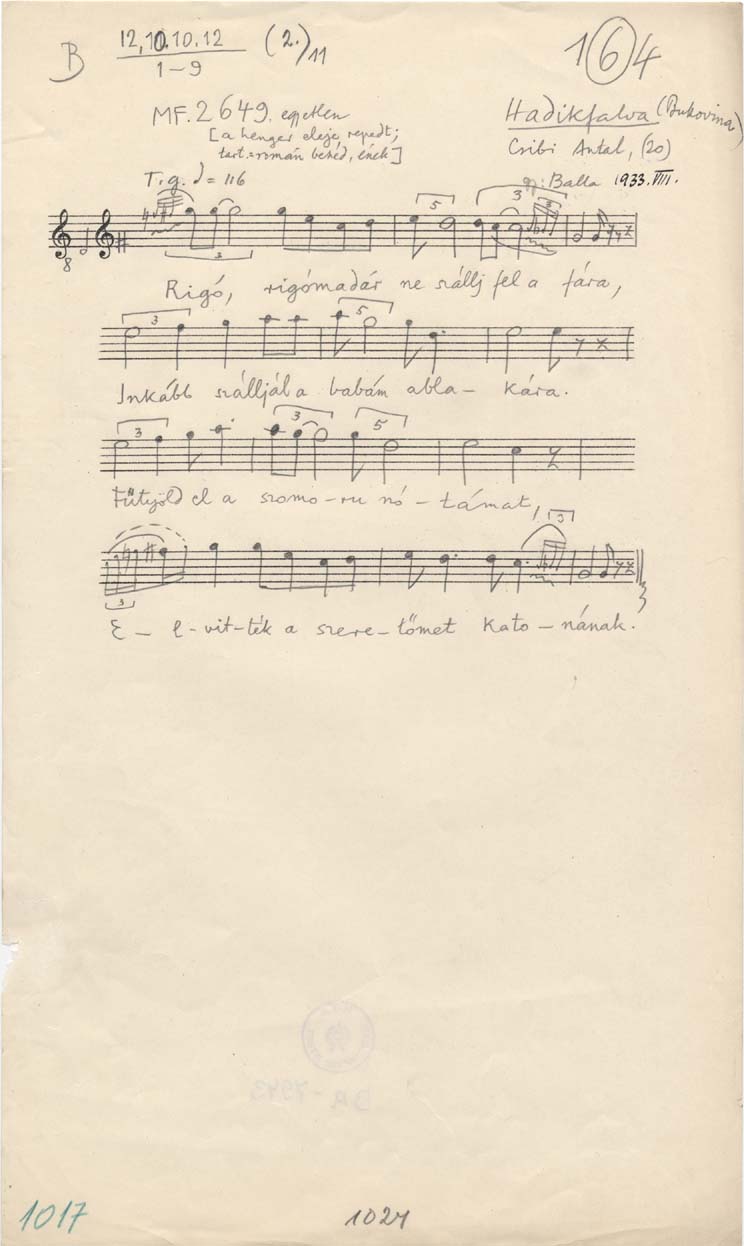 B 12,10.10.12 (2.) 11
1–9
1 6 4
MF. 2649. egyetlen
[a henger eleje repedt;
tart.: román beszéd, ének]
Hadikfalva (Bukovina)
Csibi Antal, (20)
T. g. = 116
gy: Balla 1933. VIII.
8
3 5 3 3
Rigó, rigómadár ne szállj fel a fára,
3 5
Inkább szálljál a babám abla – kára.
3 3 5
Fütyöld el a szomo – ru nó – támat,
3 3
E – l – vit – ték a szere – tőmet kato – nának.
BR - 7943
1017
1024